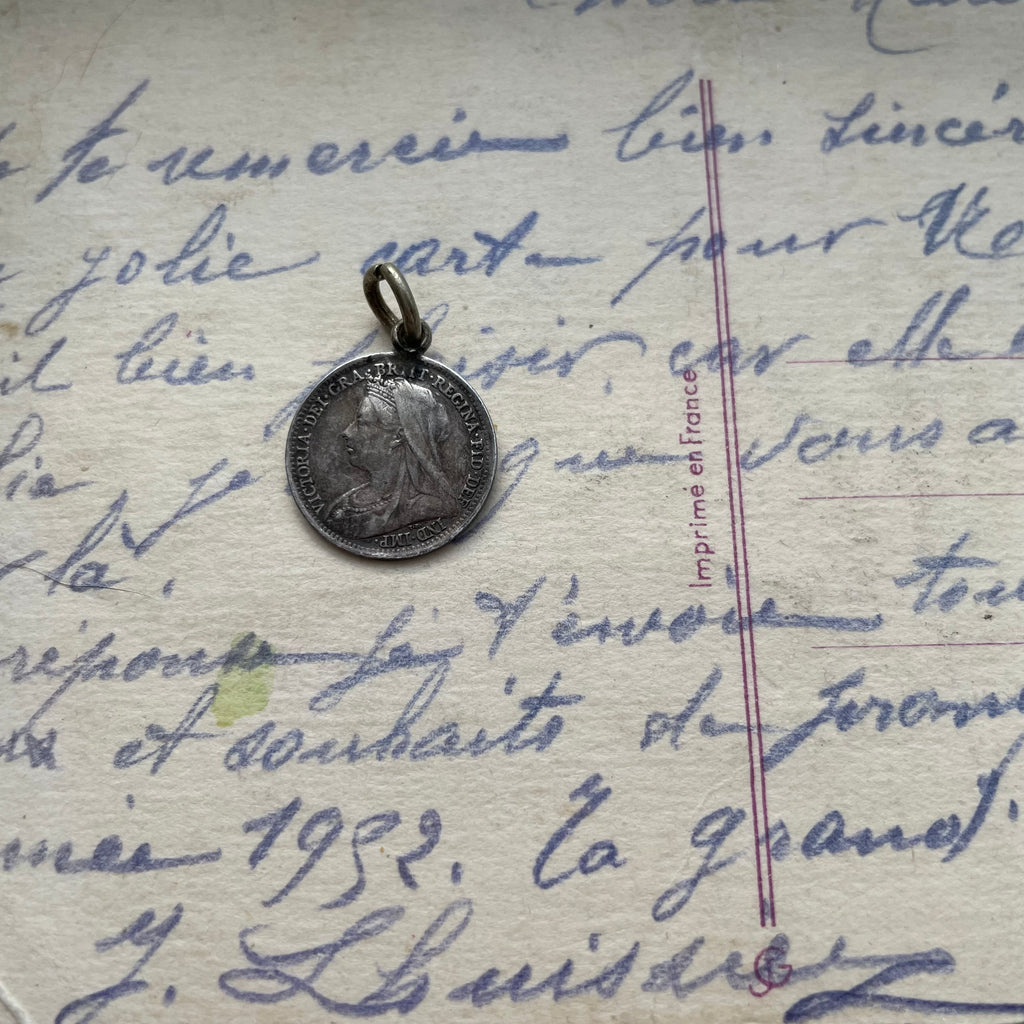 te remercie bien sincèr
jolie carte pour
il bien plaisir, car elle
je que vous a
là.
réponse je t'envoie tou
et souhaits de
née 1952. Ta grand'
Y. Lhuisdre
VICTORIA·DEI·GRA:BRITT·REGINA·FID·DEF·
IND·IMP·
Imprimé en France